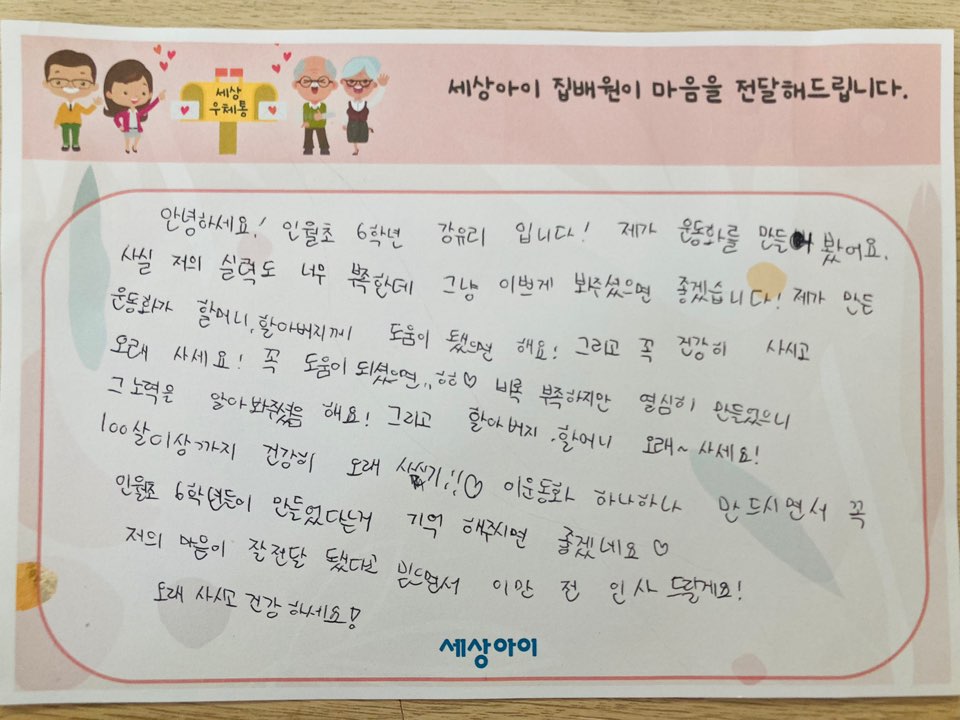 세상
우체통
세상아이 집배원이 마음을 전달해드립니다.
안녕하세요! 인월초 6학년 강유리 입니다! 제가 운동화를 만들어 봤어요.
사실 저의 실력도 너무 부족한데 그냥 이쁘게 봐주셨으면 좋겠습니다! 제가 만든
운동화가 할머니, 할아버지께 도움이 됐으면 해요! 그리고 꼭 건강히 사시고
오래 사세요! 꼭 도움이 되셨으면,, ㅎㅎ♡ 비록 부족하지만 열심히 만들었으니
그 노력을 알아봐주셨음 해요! 그리고 할아버지, 할머니 오래~ 사세요!
100살이상까지 건강히 오래 살기!!♡ 이운동화 하나하나 만드시면서 꼭
인월초 6학년들이 만들었다는거 기억 해주시면 좋겠네요♡
저의 마음이 잘전달 됐다고 믿으면서 이만 전 인사 드릴게요!
오래 사시고 건강하세요!
세상아이